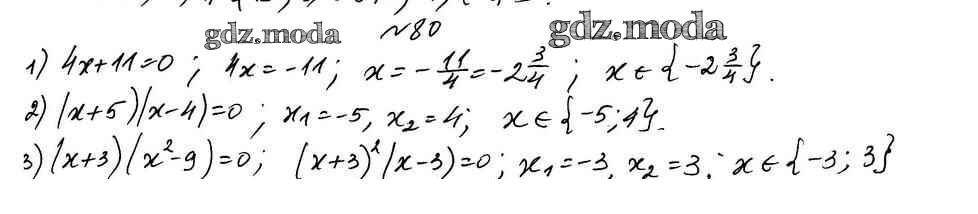 №80
gdz.moda gdz.moda
1) 4x+11=0 ; 4x=-11; x=-11/4=-2 3/4 ; x∈{-2 3/4}.
2) (x+5)(x-4)=0 ; x₁=-5, x₂=4; x∈{-5;4}.
3) (x+3)(x²-9)=0; (x+3)²(x-3)=0; x₁=-3, x₂=3; x∈{-3; 3}